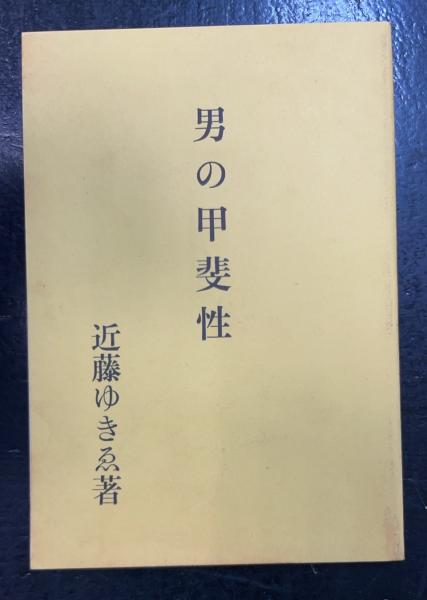 男の甲斐性
近藤ゆきゑ著